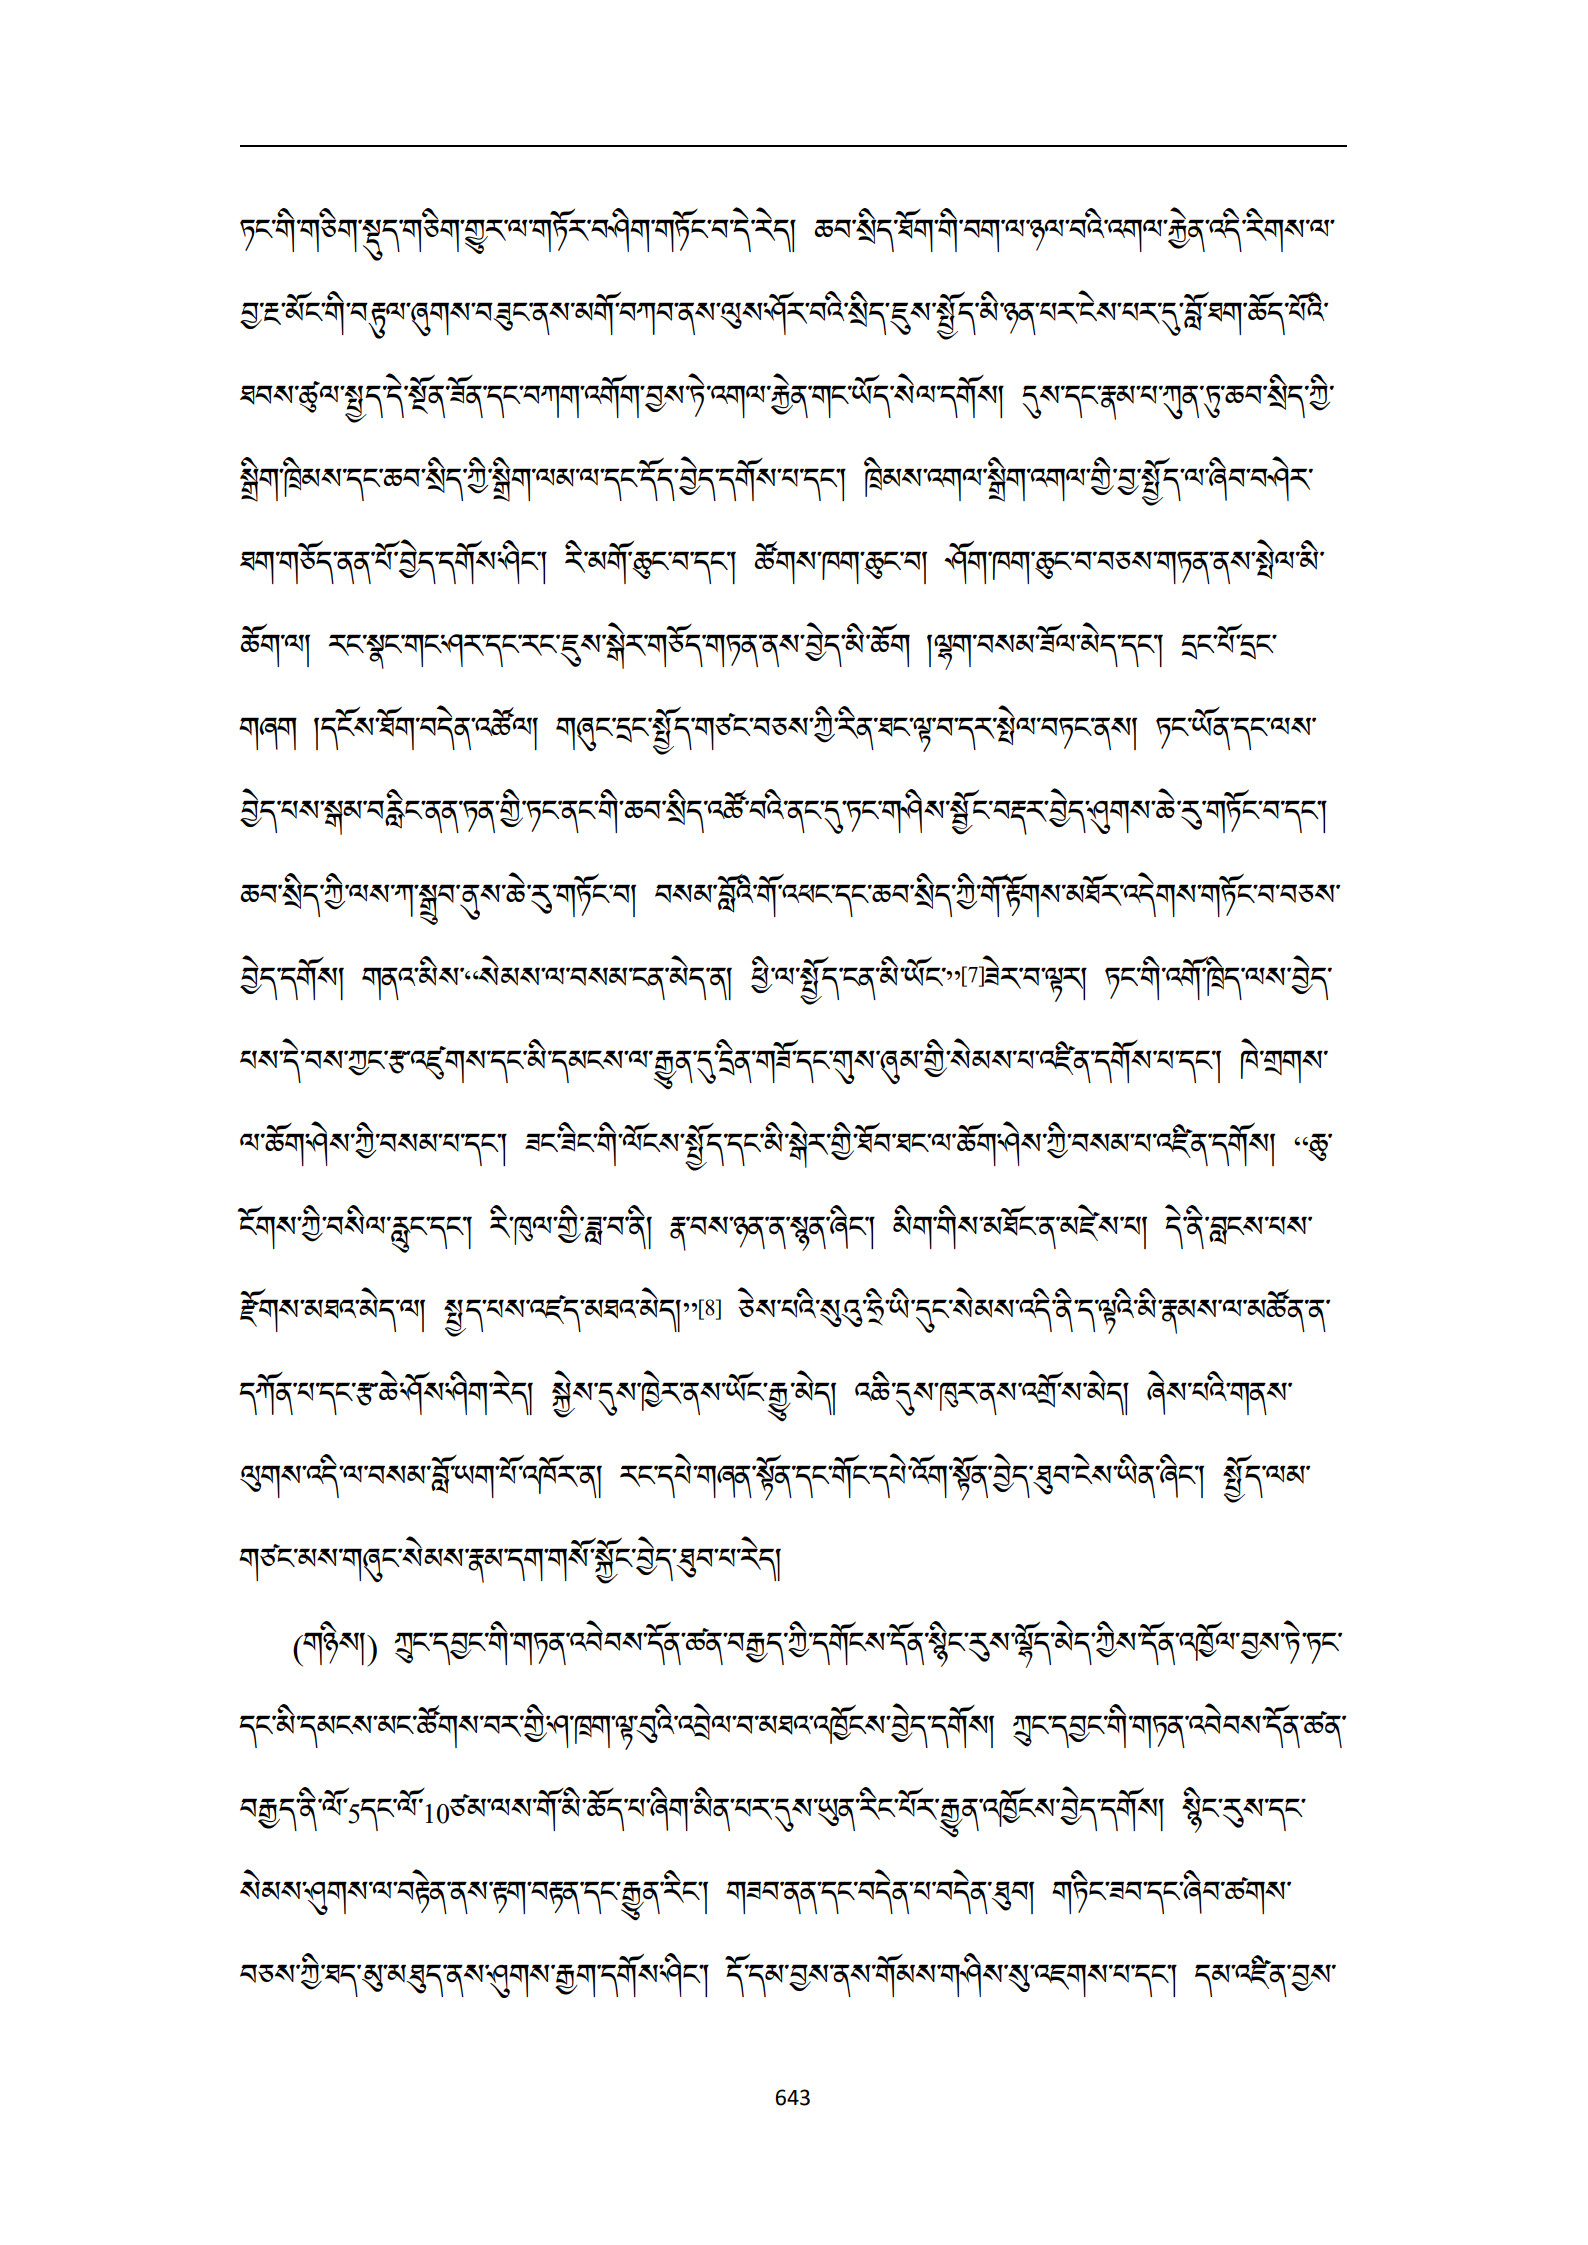 ཏང་གི་གཅིག་སྡུད་གཅིག་གྱུར་ལ་གཏོར་བཤིག་གཏོང་བ་དེ་རེད། ཆབ་སྲིད་ཐོག་གི་བག་ལ་ཉལ་བའི་འགལ་རྐྱེན་འདི་རིགས་ལ་
བྱ་རྔ་མོང་གི་བརྟུལ་ཞུགས་བཟུང་ནས་མགོ་བཀབ་ནས་ལུས་ཤོར་བའི་སྲིད་ཇུས་སྤྱོད་མི་ཉན་པར་ངེས་པར་དུ་བློ་ཐག་ཆོད་པོའི་
ཐབས་ཚུལ་སྤྱད་དེ་སྔོན་ཟོན་དང་བཀག་འགོག་བྱས་ཏེ་འགལ་རྐྱེན་གང་ཡོད་སེལ་དགོས། དུས་དང་རྣམ་པ་ཀུན་ཏུ་ཆབ་སྲིད་ཀྱི་
སྒྲིག་ཁྲིམས་དང་ཆབ་སྲིད་ཀྱི་སྒྲིག་ལམ་ལ་དང་དོད་བྱེད་དགོས་པ་དང་། ཁྲིམས་འགལ་སྒྲིག་འགལ་གྱི་བྱ་སྤྱོད་ལ་ཞིབ་བཤེར་
ཐག་གཅོད་ནན་པོ་བྱེད་དགོས་ཤིང་། རི་མགོ་ཆུང་བ་དང་། ཚོགས་ཁག་ཆུང་བ། ཤོག་ཁག་ཆུང་བ་བཅས་གཏན་ནས་སྤེལ་མི་
ཆོག་ལ། རང་སྣང་གང་ཤར་དང་རང་ཇུས་སྒེར་གཅོད་གཏན་ནས་བྱེད་མི་ཆོག །ལྷག་བསམ་ཟོལ་མེད་དང་། དྲང་པོ་དྲང་
གཞག །དངོས་ཐོག་བདེན་འཚོལ། གཞུང་དྲང་སྤྱོད་གཙང་བཅས་ཀྱི་རིན་ཐང་ལྟ་བ་དར་སྤེལ་བཏང་ནས། ཏང་ཡོན་དང་ལས་
བྱེད་པས་སྒམ་བརླིང་ནན་ཏན་གྱི་ཏང་ནང་གི་ཆབ་སྲིད་འཚོ་བའི་ནང་དུ་ཏང་གཤིས་སྦྱོང་བརྡར་བྱེད་ཤུགས་ཆེ་རུ་གཏོང་བ་དང་།
ཆབ་སྲིད་ཀྱི་ལས་ཀ་སྒྲུབ་ནུས་ཆེ་རུ་གཏོང་བ། བསམ་བློའི་གོ་འཕང་དང་ཆབ་སྲིད་ཀྱི་གོ་རྟོགས་མཐོར་འདེགས་གཏོང་བ་བཅས་
བྱེད་དགོས། གནའ་མིས་“སེམས་ལ་བསམ་ངན་མེད་ན། ཕྱི་ལ་སྤྱོད་ངན་མི་ཡོང་”[7]ཟེར་བ་ལྟར། ཏང་གི་འགོ་ཁྲིད་ལས་བྱེད་
པས་དེ་བས་ཀྱང་རྩ་འཛུགས་དང་མི་དམངས་ལ་རྒྱུན་དུ་དྲིན་གཟོ་དང་གུས་ཞུམ་གྱི་སེམས་པ་འཛིན་དགོས་པ་དང་། ཁེ་གྲགས་
ལ་ཆོག་ཤེས་ཀྱི་བསམ་པ་དང་། ཟང་ཟིང་གི་ལོངས་སྤྱོད་དང་མི་སྒེར་གྱི་ཐོབ་ཐང་ལ་ཆོག་ཤེས་ཀྱི་བསམ་པ་འཛིན་དགོས། “ཆུ་
ངོགས་ཀྱི་བསིལ་རླུང་དང་། རི་ཁུལ་གྱི་ཟླ་བ་ནི། རྣ་བས་ཉན་ན་སྙན་ཞིང་། མིག་གིས་མཐོང་ན་མཛེས་པ། དེ་ནི་བླངས་པས་
རྫོགས་མཐའ་མེད་ལ། སྤྱད་པས་འཛད་མཐའ་མེད།”[8] ཅེས་པའི་སུའུ་ཧྲི་ཡི་དུང་སེམས་འདི་ནི་ད་ལྟའི་མི་རྣམས་ལ་མཚོན་ན་
དཀོན་པ་དང་རྩ་ཆེ་ཤོས་ཤིག་རེད། སྐྱེས་དུས་ཁྱེར་ནས་ཡོང་རྒྱུ་མེད། འཆི་དུས་ཁུར་ནས་འགྲོ་ས་མེད། ཞེས་པའི་གནས་
ལུགས་འདི་ལ་བསམ་བློ་ཡག་པོ་འཁོར་ན། རང་དཔེ་གཞན་སྟོན་དང་གོང་དཔེ་འོག་སྟོན་བྱེད་ཐུབ་ངེས་ཡིན་ཞིང་། སྤྱོད་ལམ་
གཙང་མས་གཞུང་སེམས་རྣམ་དག་གསོ་སྐྱོང་བྱེད་ཐུབ་པ་རེད།
(གཉིས།) ཀྲུང་དབྱང་གི་གཏན་འབེབས་དོན་ཚན་བརྒྱད་ཀྱི་དགོངས་དོན་སྙིང་རུས་ལྷོད་མེད་ཀྱིས་དོན་འཁྱོལ་བྱས་ཏེ་ཏང་
དང་མི་དམངས་མང་ཚོགས་བར་གྱི་ཤ་ཁྲག་ལྟ་བུའི་འབྲེལ་བ་མཐའ་འཁྱོངས་བྱེད་དགོས། ཀྲུང་དབྱང་གི་གཏན་འབེབས་དོན་ཚན་
བརྒྱད་ནི་ལོ་5དང་ལོ་10ཙམ་ལས་གོ་མི་ཆོད་པ་ཞིག་མིན་པར་དུས་ཡུན་རིང་པོར་རྒྱུན་འཁྱོངས་བྱེད་དགོས། སྙིང་རུས་དང་
སེམས་ཤུགས་ལ་བརྟེན་ནས་རྟག་བརྟན་དང་རྒྱུན་རིང་། གཟབ་ནན་དང་བདེན་པ་བདེན་ཐུབ། གཏིང་ཟབ་དང་ཞིབ་ཚགས་
བཅས་ཀྱི་ཐད་མུ་མཐུད་ནས་ཤུགས་རྒྱག་དགོས་ཤིང་། དོ་དམ་བྱས་ནས་གོམས་གཤིས་སུ་འཇགས་པ་དང་། དམ་འཛིན་བྱས་
643